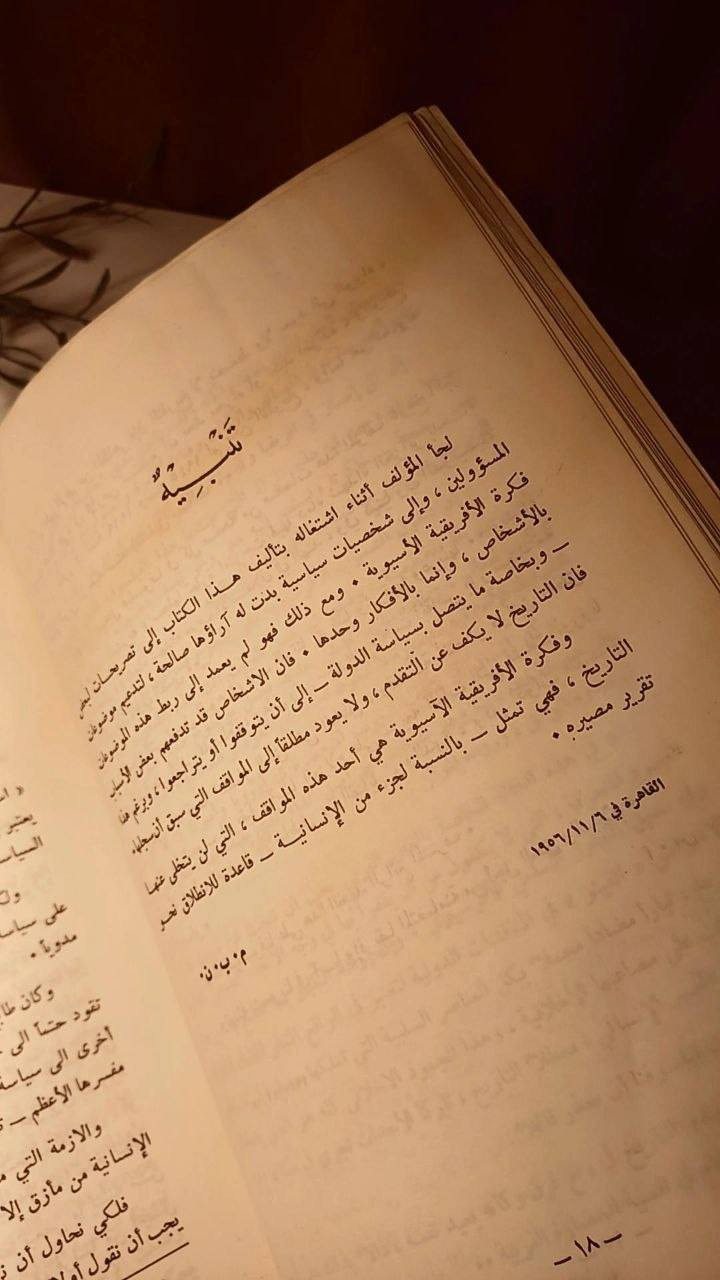 تَنْبِيهٌ
لجأ المؤلف أثناء اشتغاله بتأليف هـذا الكتاب إلى تصريحـات لبعض
المسؤولين ، وإلى شخصيات سياسية بدت له آراؤها صالحة ، لتدعيم موضوعات
فكرة الأفريقية الأسيوية . ومع ذلك فهو لم يعمد إلى ربط هذه الموضوعات
بالأشخاص ، وإنما بالأفكار وحدها . فان الاشخاص قد تدفعهم بعض الأسباب
– وبخاصة ما يتصل بسياسة الدولة – إلى أن يتوقفوا أو يتراجعوا ، وبرغم هذا
فان التاريخ لا يكف عن التقدم ، ولا يعود مطلقاً إلى المواقف التي سبق أن سجلها .
وفكرة الأفريقية الآسيوية هي أحد هذه المواقف ، التي لن يتخلى عنها
التاريخ ، فهي تمثل – بالنسبة لجزء من الإنسانيـة – قاعدة للانطلاق نحـو
تقرير مصيره .
القاهرة في ١٩٥٦/١١/٦
م . ب . ن .
– ١٨ –
يعتبر
السياس
على سياسة
مدوياً .
وكان
تقود حتماً الى
أخرى الى سياسة
مفسرها الأعظم –
والازمة التي
الإنسانية من مأزق إلا
فلكي نحاول أن
يجب أن نقول